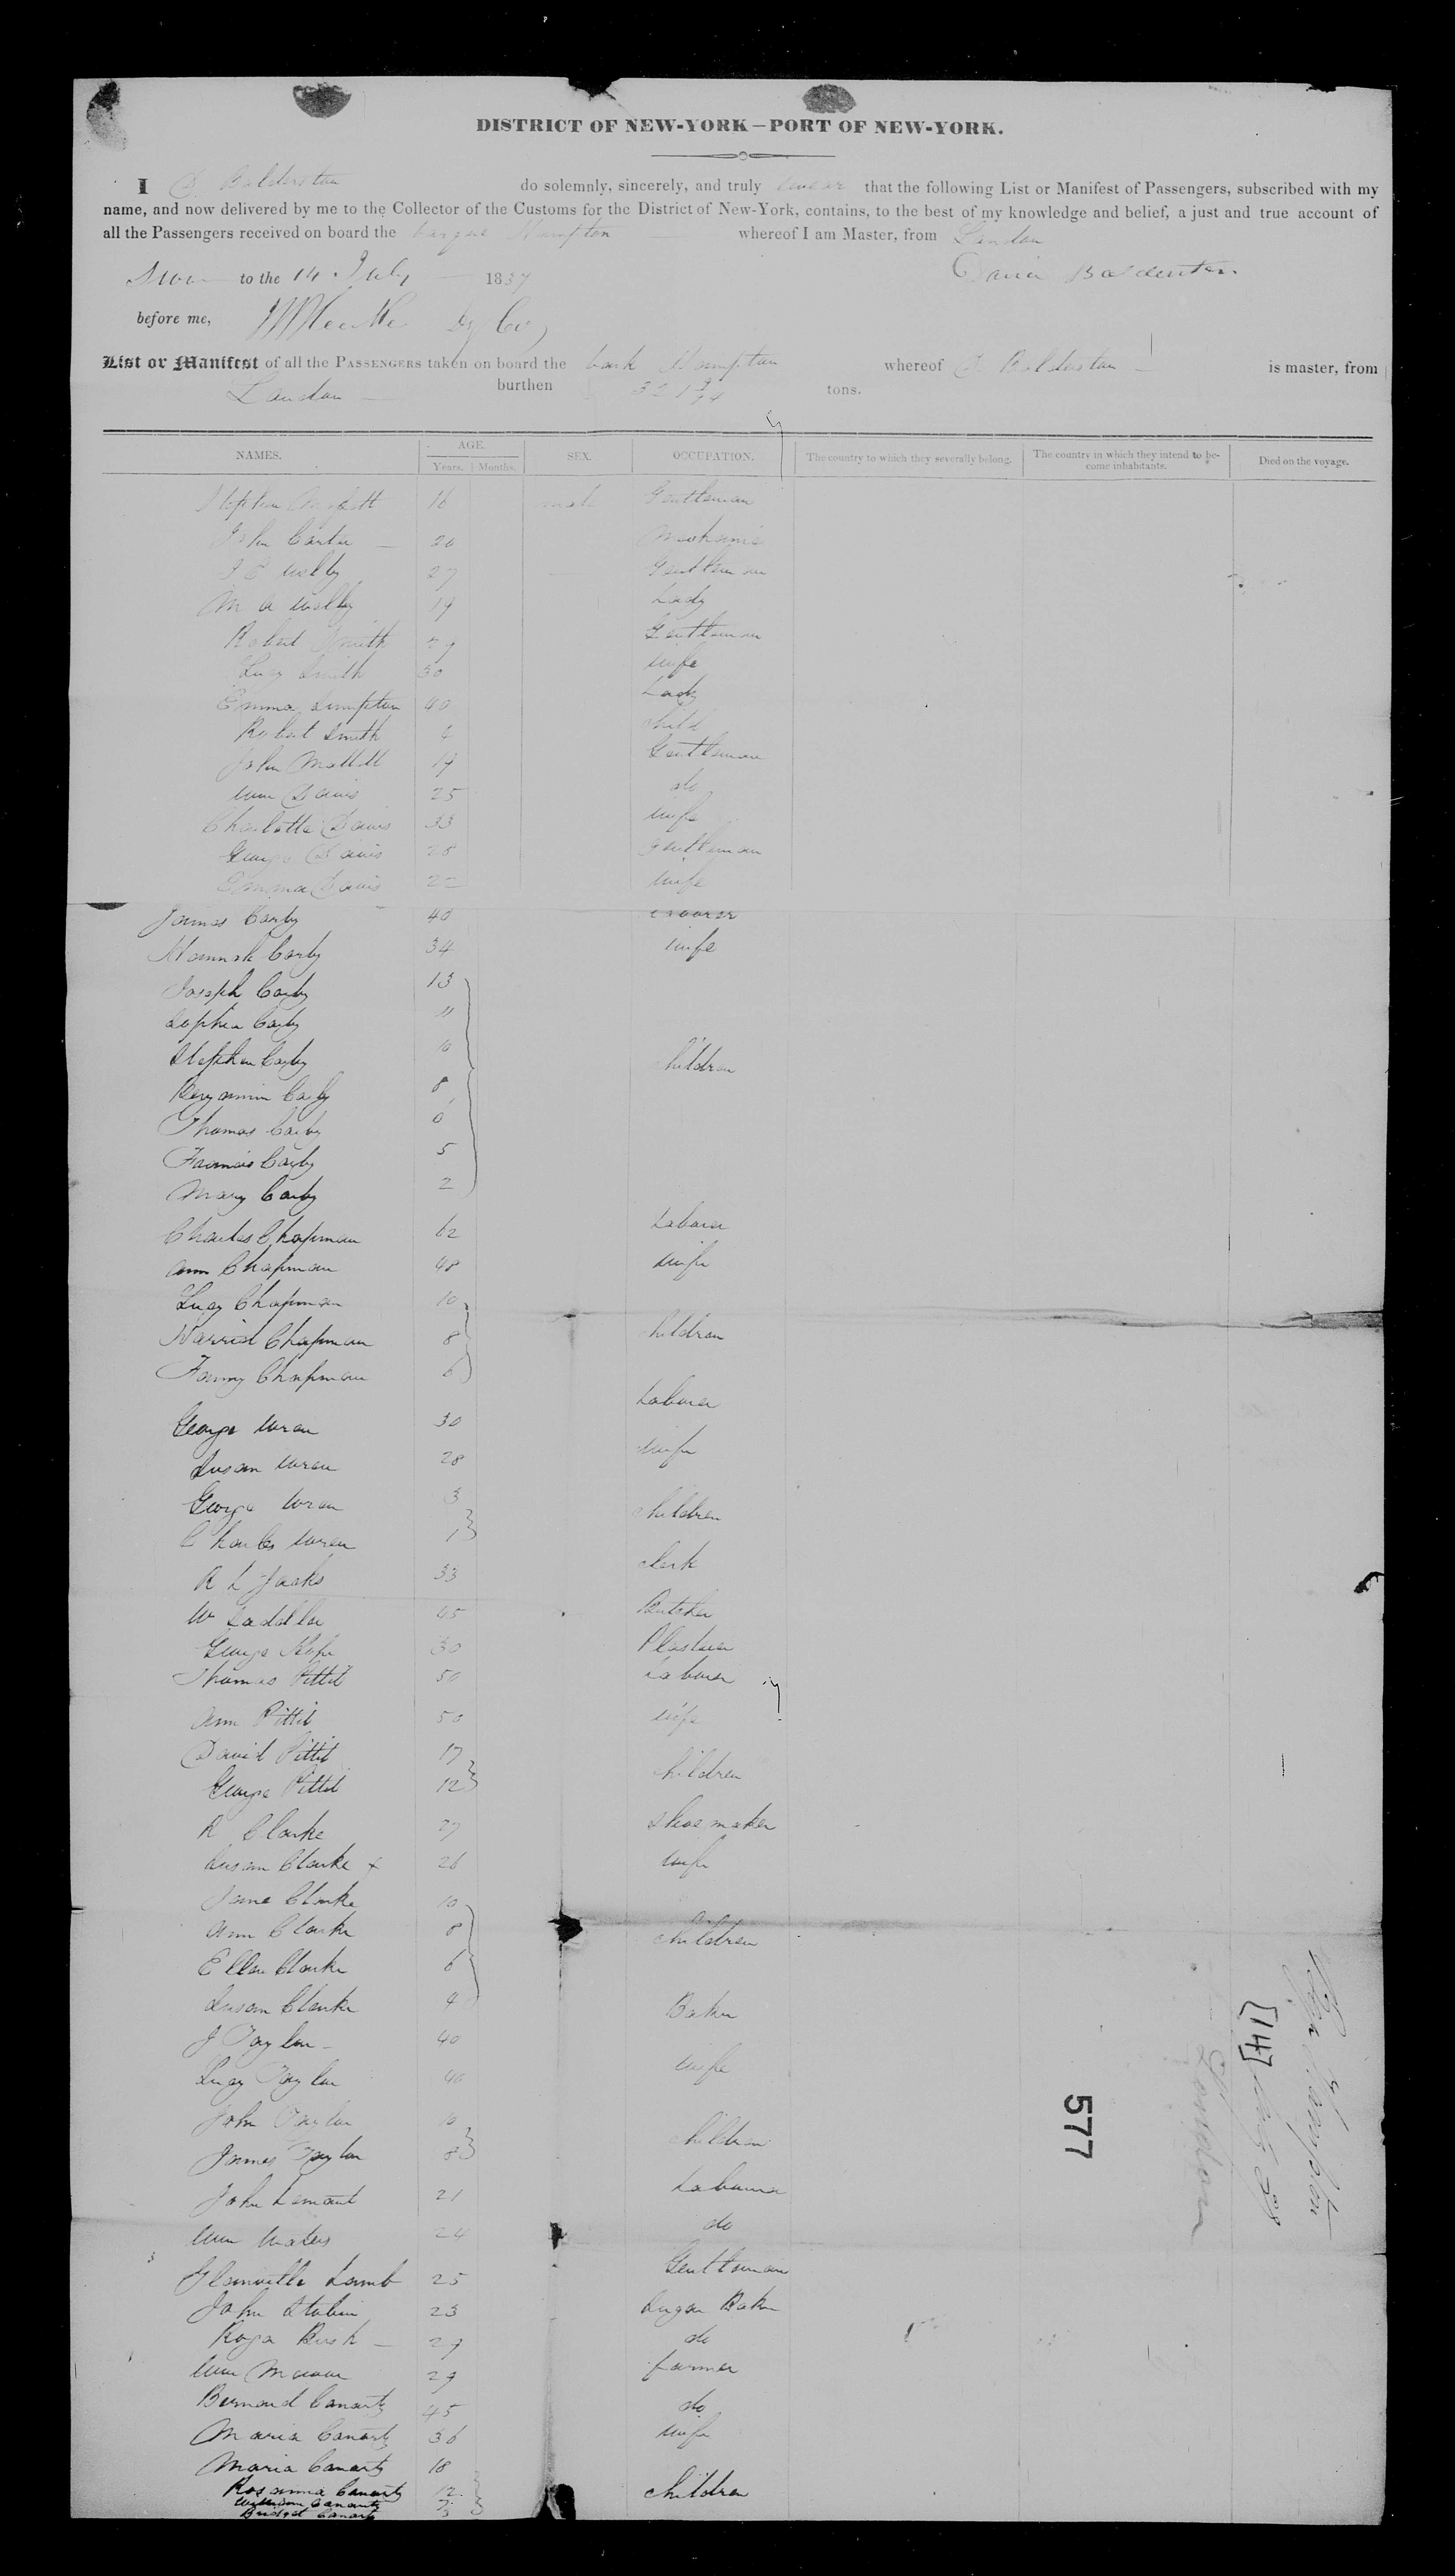 DISTRICT OF NEW-YORK—PORT OF NEW-YORK.
I D. Balderston do solemnly, sincerely, and truly swear that the following List or Manifest of Passengers, subscribed with my
name, and now delivered by me to the Collector of the Customs for the District of New-York, contains, to the best of my knowledge and belief, a just and true account of
all the Passengers received on board the barque Hampton whereof I am Master, from London
Sworn to the 14 July 1837 David Balderston
before me,
List or Manifest of all the PASSENGERS taken on board the bark Hampton whereof D. Balderston is master, from
London burthen 321 tons.
NAMES. AGE. Years. Months. SEX. OCCUPATION. The country to which they severally belong. The country in which they intend to become inhabitants. Died on the voyage.
Stephen 16 male Gentleman
John Carter 20 Mechanic
27 Gentleman
M A 19 Lady
Robert Smith 29 Gentleman
Lucy Smith 30 wife
Emma 40 Lady
Robert Smith 4 child
John 19 Gentleman
Wm Davis 25 do
Charlotte Davis 33 wife
George Davis 28 gentleman
Emma Davis 22 wife
James Carby 40
Hannah Carby 34 wife
Joseph Carby 13
Sophia Carby 11
Stephen Carby 10 children
Benjamin Carby 8
Thomas Carby 6
Francis Carby 5
Mary Carby 2
Charles Chapman 62 Labourer
Ann Chapman 48 wife
Lucy Chapman 10
Harriet Chapman 8 children
Fanny Chapman 6
George Wren 30 Labourer
Susan Wren 28 wife
George Wren 3 children
Charles Wren 1
R L Jacks 33 clerk
W Saddler 45 Butcher
George 30 Plasterer
Thomas Pettit 50 Labourer
Ann Pettit 50 wife
David Pettit 17 children
George Pettit 12
R Clarke 27 Shoe maker
Susan Clarke + 26 wife
Jane Clarke 10
Ann Clarke 8 children
Ellen Clarke 6
Susan Clarke 4
J Taylor 40 Baker
Lucy Taylor 40 wife
John Taylor 10
James Taylor 8 children
John 21 Labourer
Wm Waters 24 do
Glanville Lamb 25 Gentleman
John 23 Sugar Baker
Roger Bush 29 do
Wm 29 farmer
Bernard Canarty 45 do
Maria Canarty 36 wife
Maria Canarty 18
Rosanna Canarty 12 children
William Canarty 7
Bridget Canarty 3
577
London
[14]
Hampton